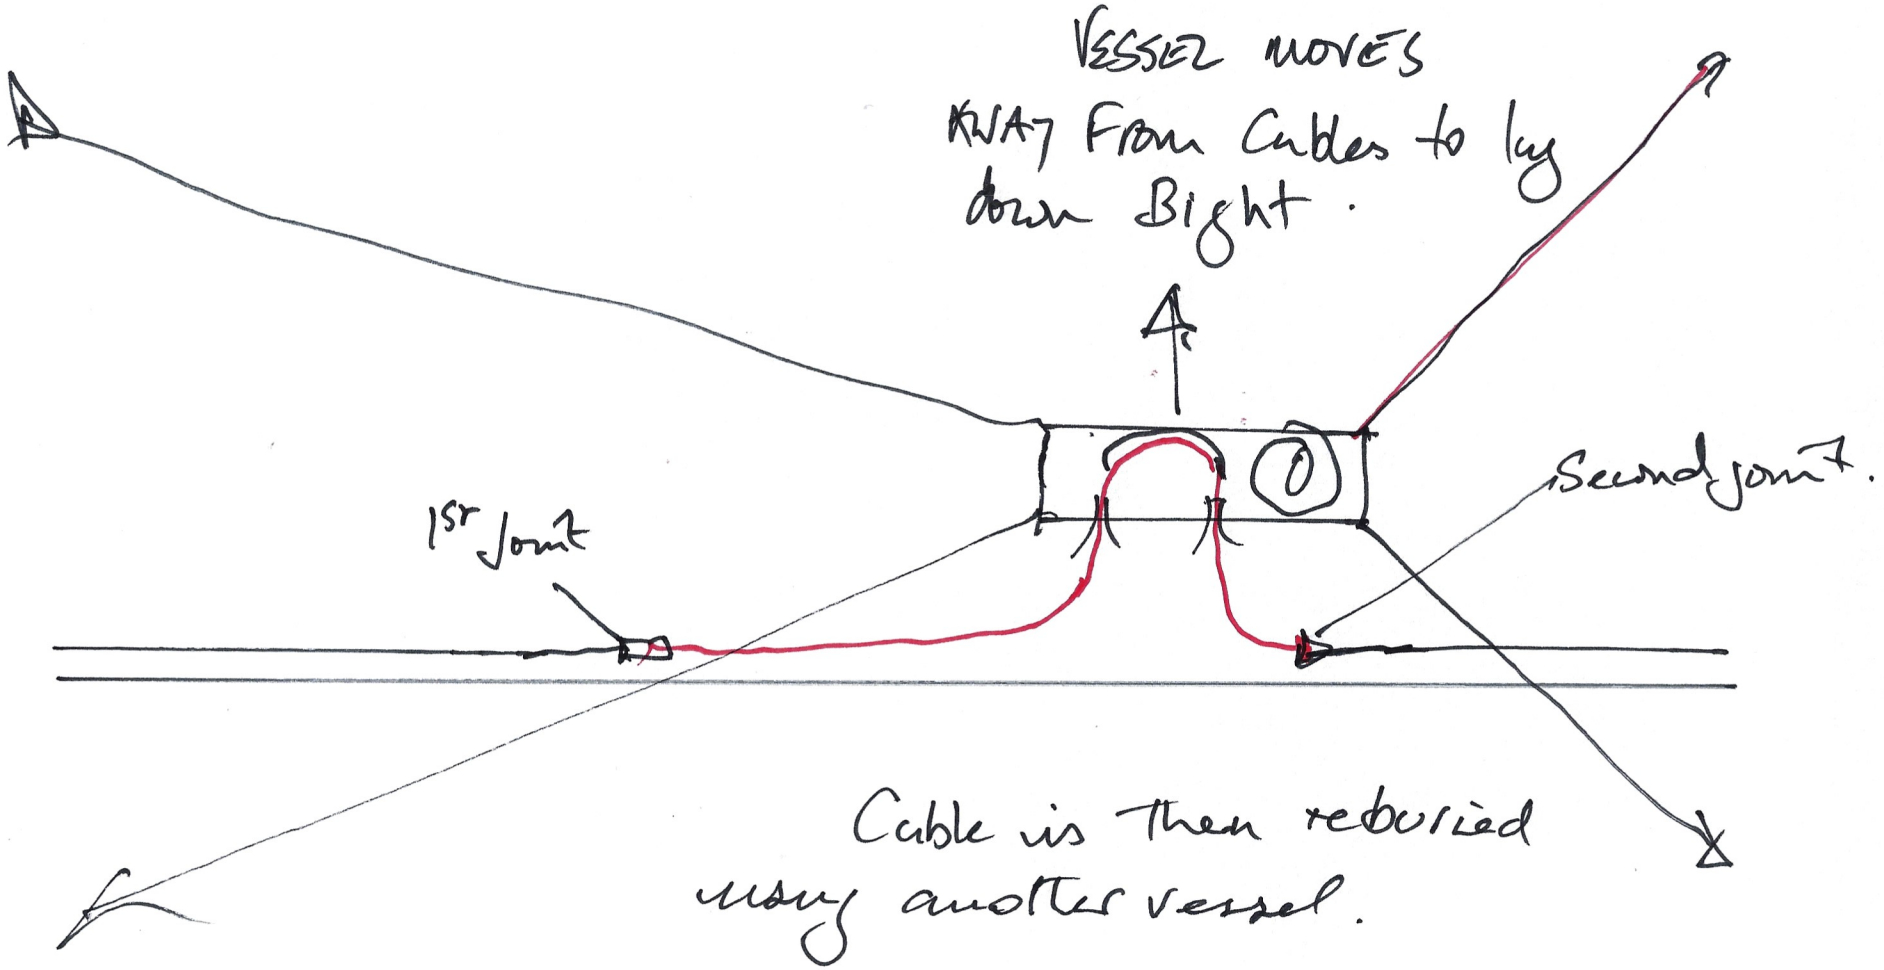 VESSEL MOVES
AWAY From Cables to lay
down Bight.
1st Joint
Second joint.
Cable is then reburied
using another vessel.